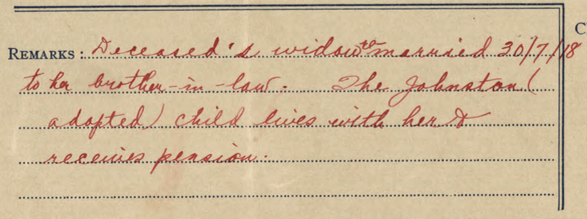 REMARKS: Deceased's widow re married 30/7/18
to her brother-in-law. The Johnston (
adopted) child lives with her &
receives pension.
C